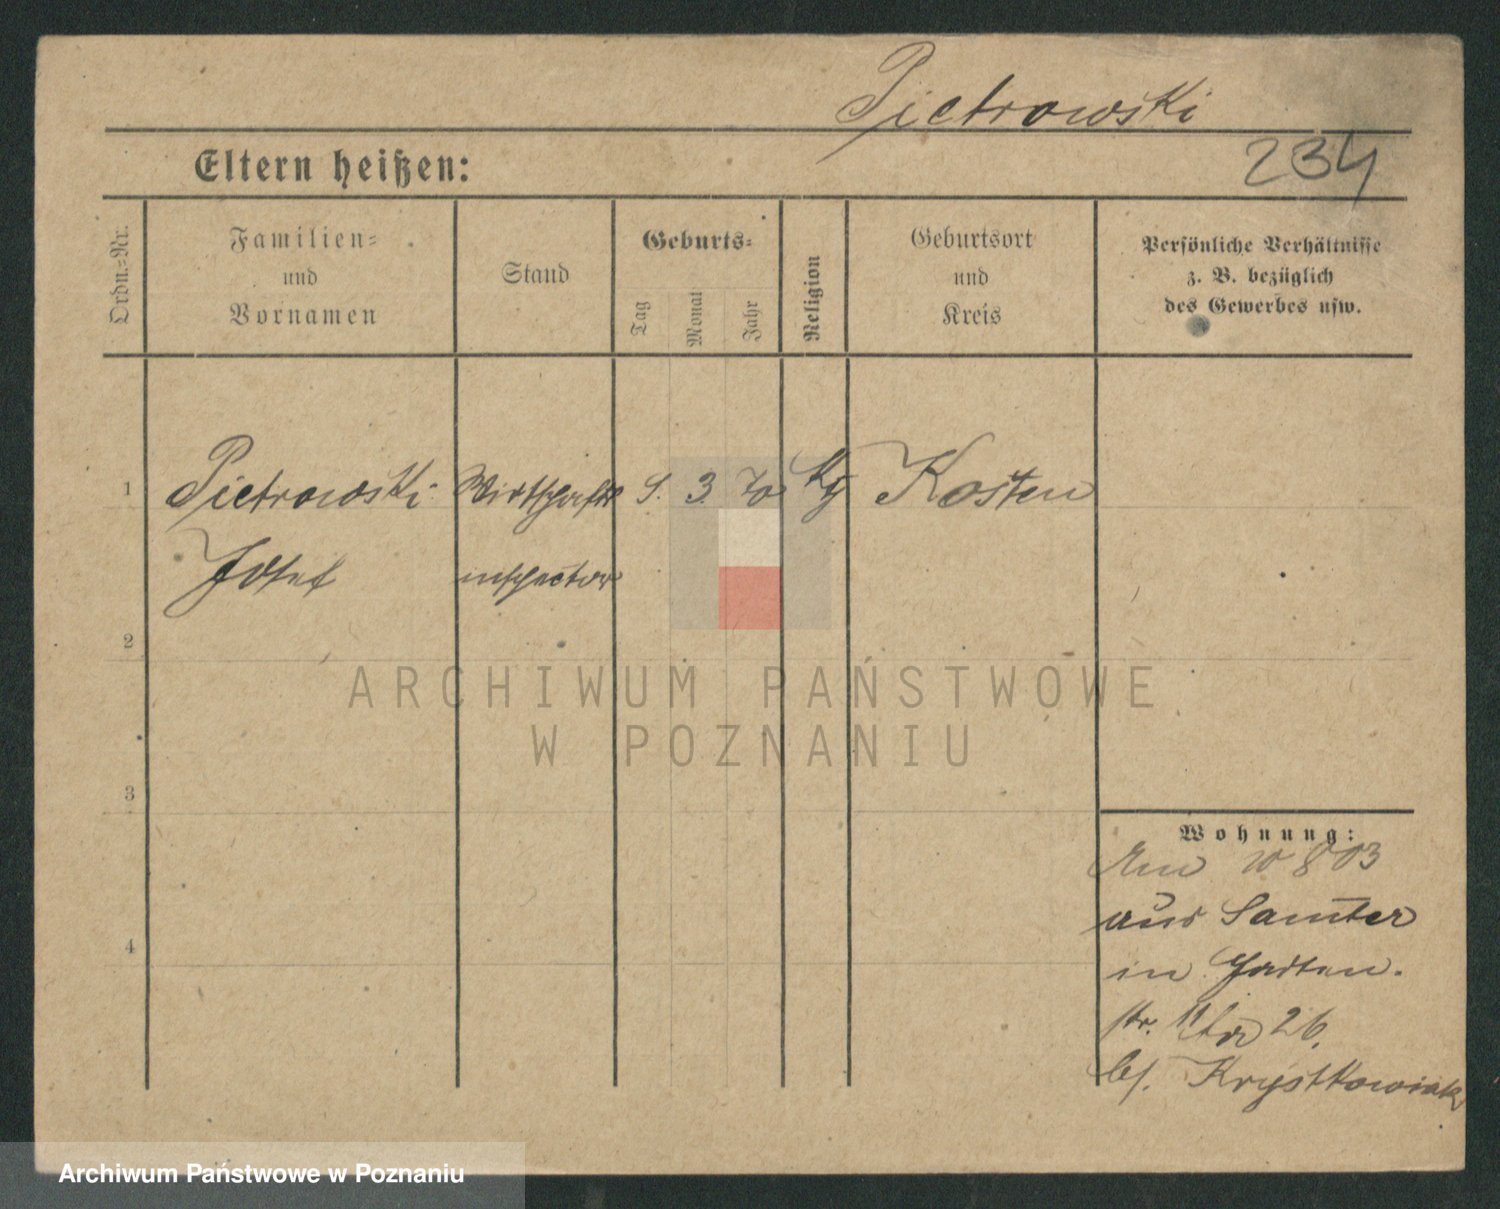 Pietrowski
Eltern heißen:
234
Ordn.-Nr.
Familien-
und
Vornamen
Stand
Geburts-
Tag
Monat
Jahr
Religion
Geburtsort
und
Kreis
Persönliche Verhältnisse
z. B. bezüglich
des Gewerbes usw.
1
Pietrowski
Wirtschafts
3.
70
Kosten
Josef
inspector
2
ARCHIWUM PAŃSTWOWE
W POZNANIU
3
Wohnung:
803
aus Samter
in Garten.
str. 26.
bs. Krystkowiak
4
Archiwum Państwowe w Poznaniu